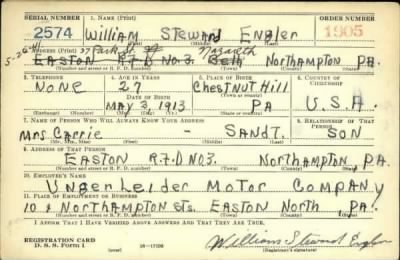 SERIAL NUMBER 1. NAME (Print) ORDER NUMBER
2574 William Steward Engler 1905
(First) (Middle) (Last)
2. ADDRESS (Print) 37 Park St Nazareth
5-26-41 EASTON R.F.D No3. Northampton PA.
(Number and street or R. F. D. number) (Town) (County) (State)
3. TELEPHONE 4. AGE IN YEARS 5. PLACE OF BIRTH 6. COUNTRY OF CITIZENSHIP
NONE 27 Chestnut Hill
DATE OF BIRTH (Town or county)
MAY 3, 1913 PA U.S.A.
(Mo.) (Day) (Yr.) (State or country)
7. NAME OF PERSON WHO WILL ALWAYS KNOW YOUR ADDRESS 8. RELATIONSHIP OF THAT PERSON
Mrs Carrie - SANDT. SON
(Mr., Mrs., Miss) (First) (Middle) (Last)
9. ADDRESS OF THAT PERSON
EASTON R.F.D No3. Northampton PA.
(Number and street or R. F. D. number) (Town) (County) (State)
10. EMPLOYER'S NAME
Unger Leider Motor Company
11. PLACE OF EMPLOYMENT OR BUSINESS
10 & Northampton Sts. EASTON North PA.
(Number and street or R. F. D. number) (Town) (County) (State)
I AFFIRM THAT I HAVE VERIFIED ABOVE ANSWERS AND THAT THEY ARE TRUE.
REGISTRATION CARD
D. S. S. Form 1 (over) 16-17105 William Steward Engler
(Registrant's signature)